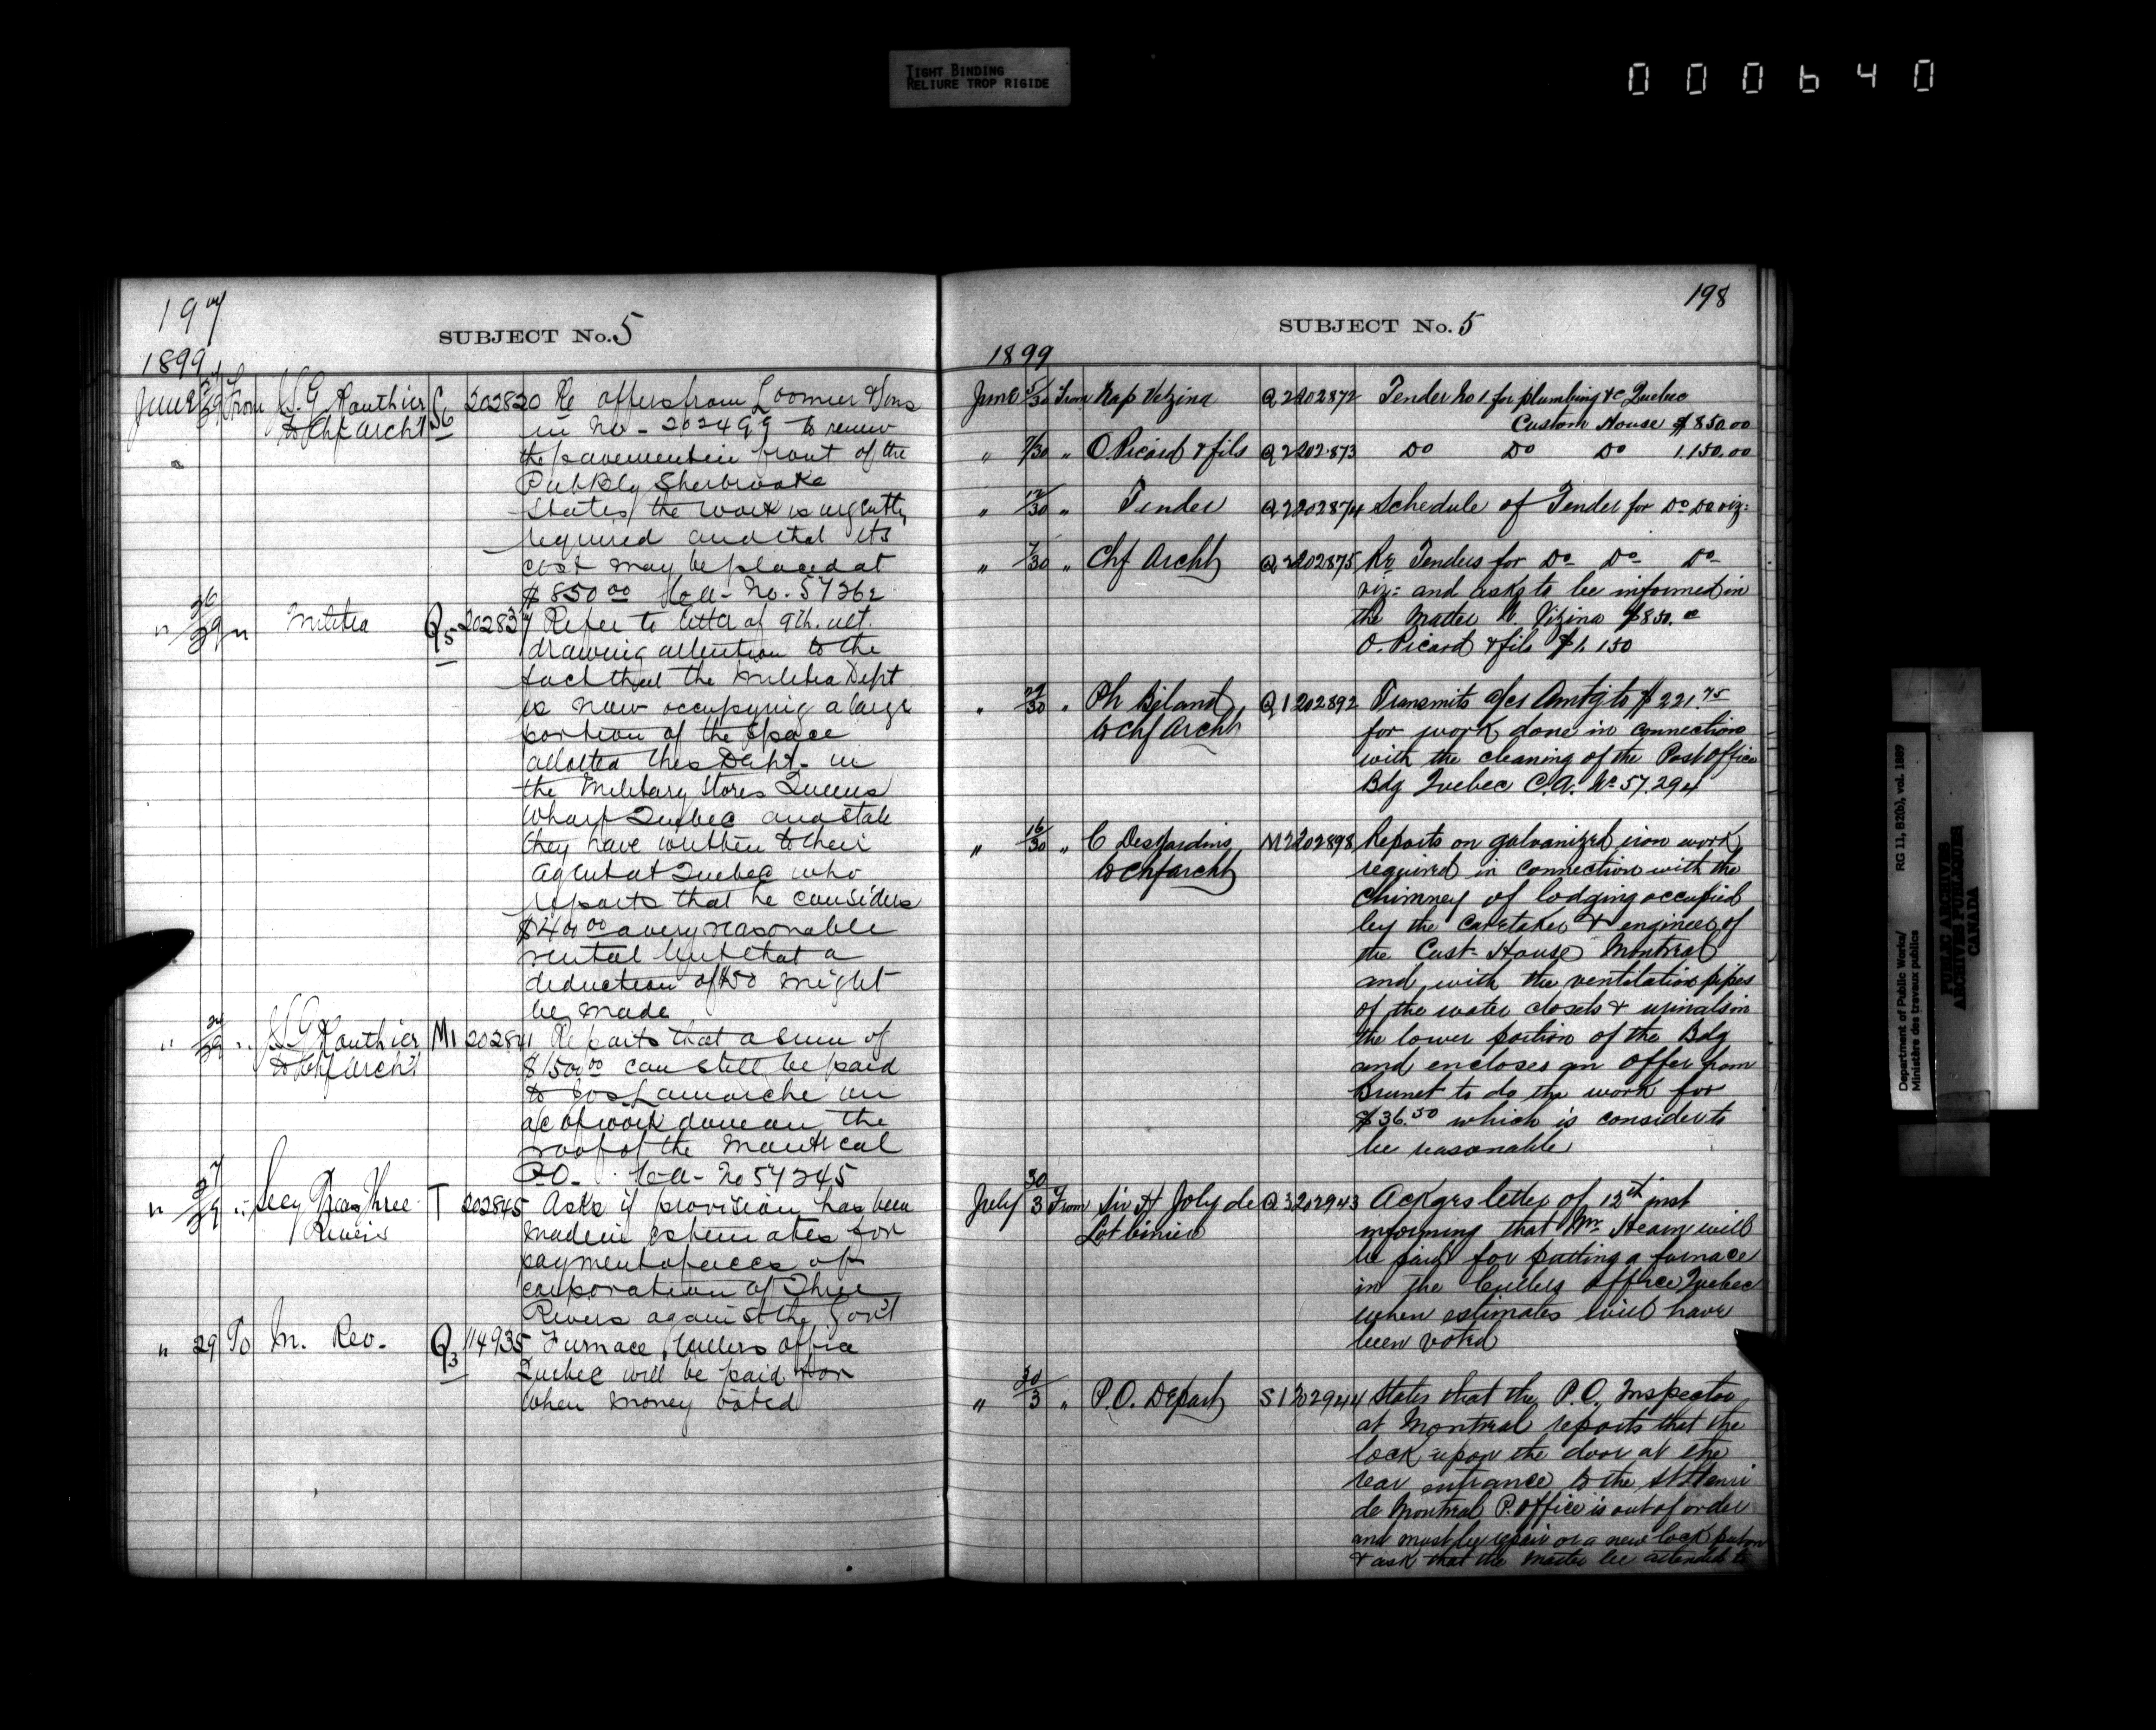 TIGHT BINDING
RELIURE TROP RIGIDE
000640
197
SUBJECT No. 5
1899
June 27/29 From J. G. Routhier S6 202820 Re offers from Loomis & Sons
to Chf Archt in No - 202499 to renew
the pavement in front of the
Pub Bldg Sherbrooke
States the work is urgently
required and that its
cost may be placed at
$850 00 No. 57262
" 26/29 " Militia Q5 202837 Refer to letter of 9th. ult.
drawing attention to the
fact that the Militia Dept
is now occupying a large
portion of the space
allotted this Dept. in
the Military Stores Queens
Wharf Quebec and state
they have written to their
agent at Quebec who
reports that he considers
a very reasonable
rental but that a
deduction of $50 might
be made
" 24/29 " J G Routhier M1 202841 Reports that a sum of
to Chf Archt $1500 00 can still be paid
to Jos Lamarche on
a/c of work done on the
roof of the Montreal
P.O. No 57245
" 27/29 " Secy Treas Three T 202845 Asks if provision has been
Rivers made in estimates for
payment of
corporation of Three
Rivers against the Gov't
" 29 To In. Rev. Q3 114935 Furnace Cullers office
Quebec will be paid for
when money voted
198
SUBJECT No. 5
1899
June 5/30 From Nap Vézina Q2 202872 Tender No 1 for plumbing &c Quebec
Custom House $850.00
" 7/30 " O. Picard & fils Q2 202873 Do Do Do 1.150.00
" 12/30 " Tender Q2 202874 Schedule of Tender for Do Do viz:
" 7/30 " Chf Archt Q2 202875 Re Tenders for Do Do Do
viz: and asks to be informed in
the Matter N. Vizina $850.
O. Picard & fils $1.150
" 29/30 " Ph Béland Q1 202892 Transmits a/cs Amtg to $221.75
to Chf Archt for work done in connection
with the cleaning of the Post Office
Bdg Quebec C.A. No 57.294
" 16/30 " C Desjardins M2 202898 Reports on galvanized iron work
to Chf archt required in connection with the
chimney of lodging occupied
by the caretaker & engineer of
the Cust. House Montreal
and with the ventilation pipes
of the water closets & urinals in
the lower portion of the Bdg
and encloses an offer from
Brunet to do the work for
$36.50 which is consider to
be reasonable
July 30/3 From Sir H Joly de Q3 202943 Ackges letter of 12th inst
Lotbinière informing that Mr. Hearn will
be paid for putting a furnace
in the Cullers office Quebec
when estimates will have
been voted
" 30/3 " P.O. Depart S1 202944 States that the P.O. Inspector
at Montreal reports that the
lock upon the door at the
rear entrance to the St Henri
de Montreal P. Office is out of order
and must be repair or a new lock put on
& ask that the matter be attended to
Department of Public Works/
Ministère des travaux publics
RG 11, B2(b), vol. 1889
PUBLIC ARCHIVES
ARCHIVES PUBLIQUES
CANADA